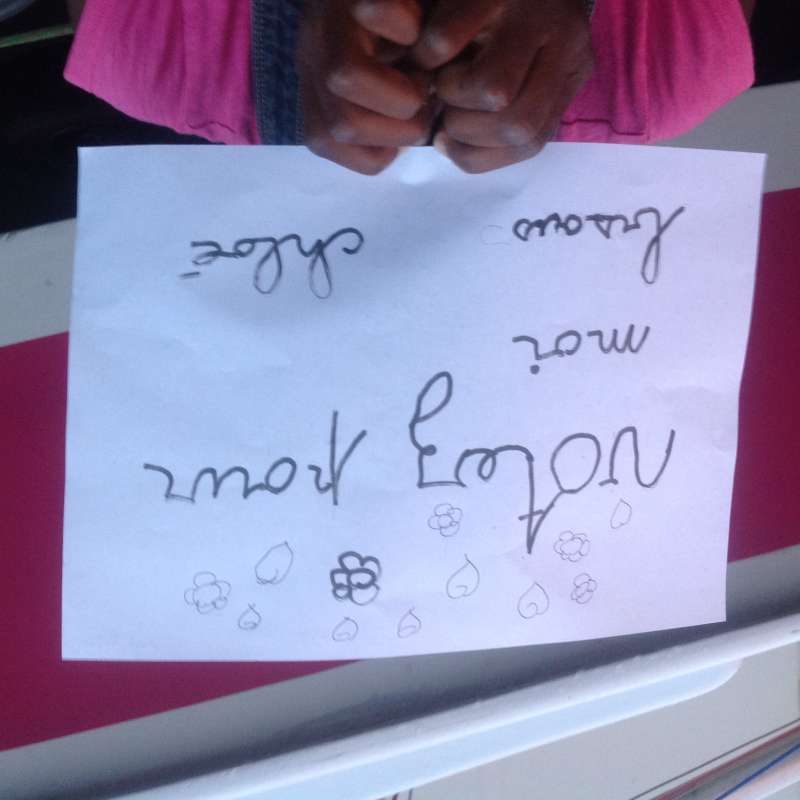 votez pour
moi
bisous chloé